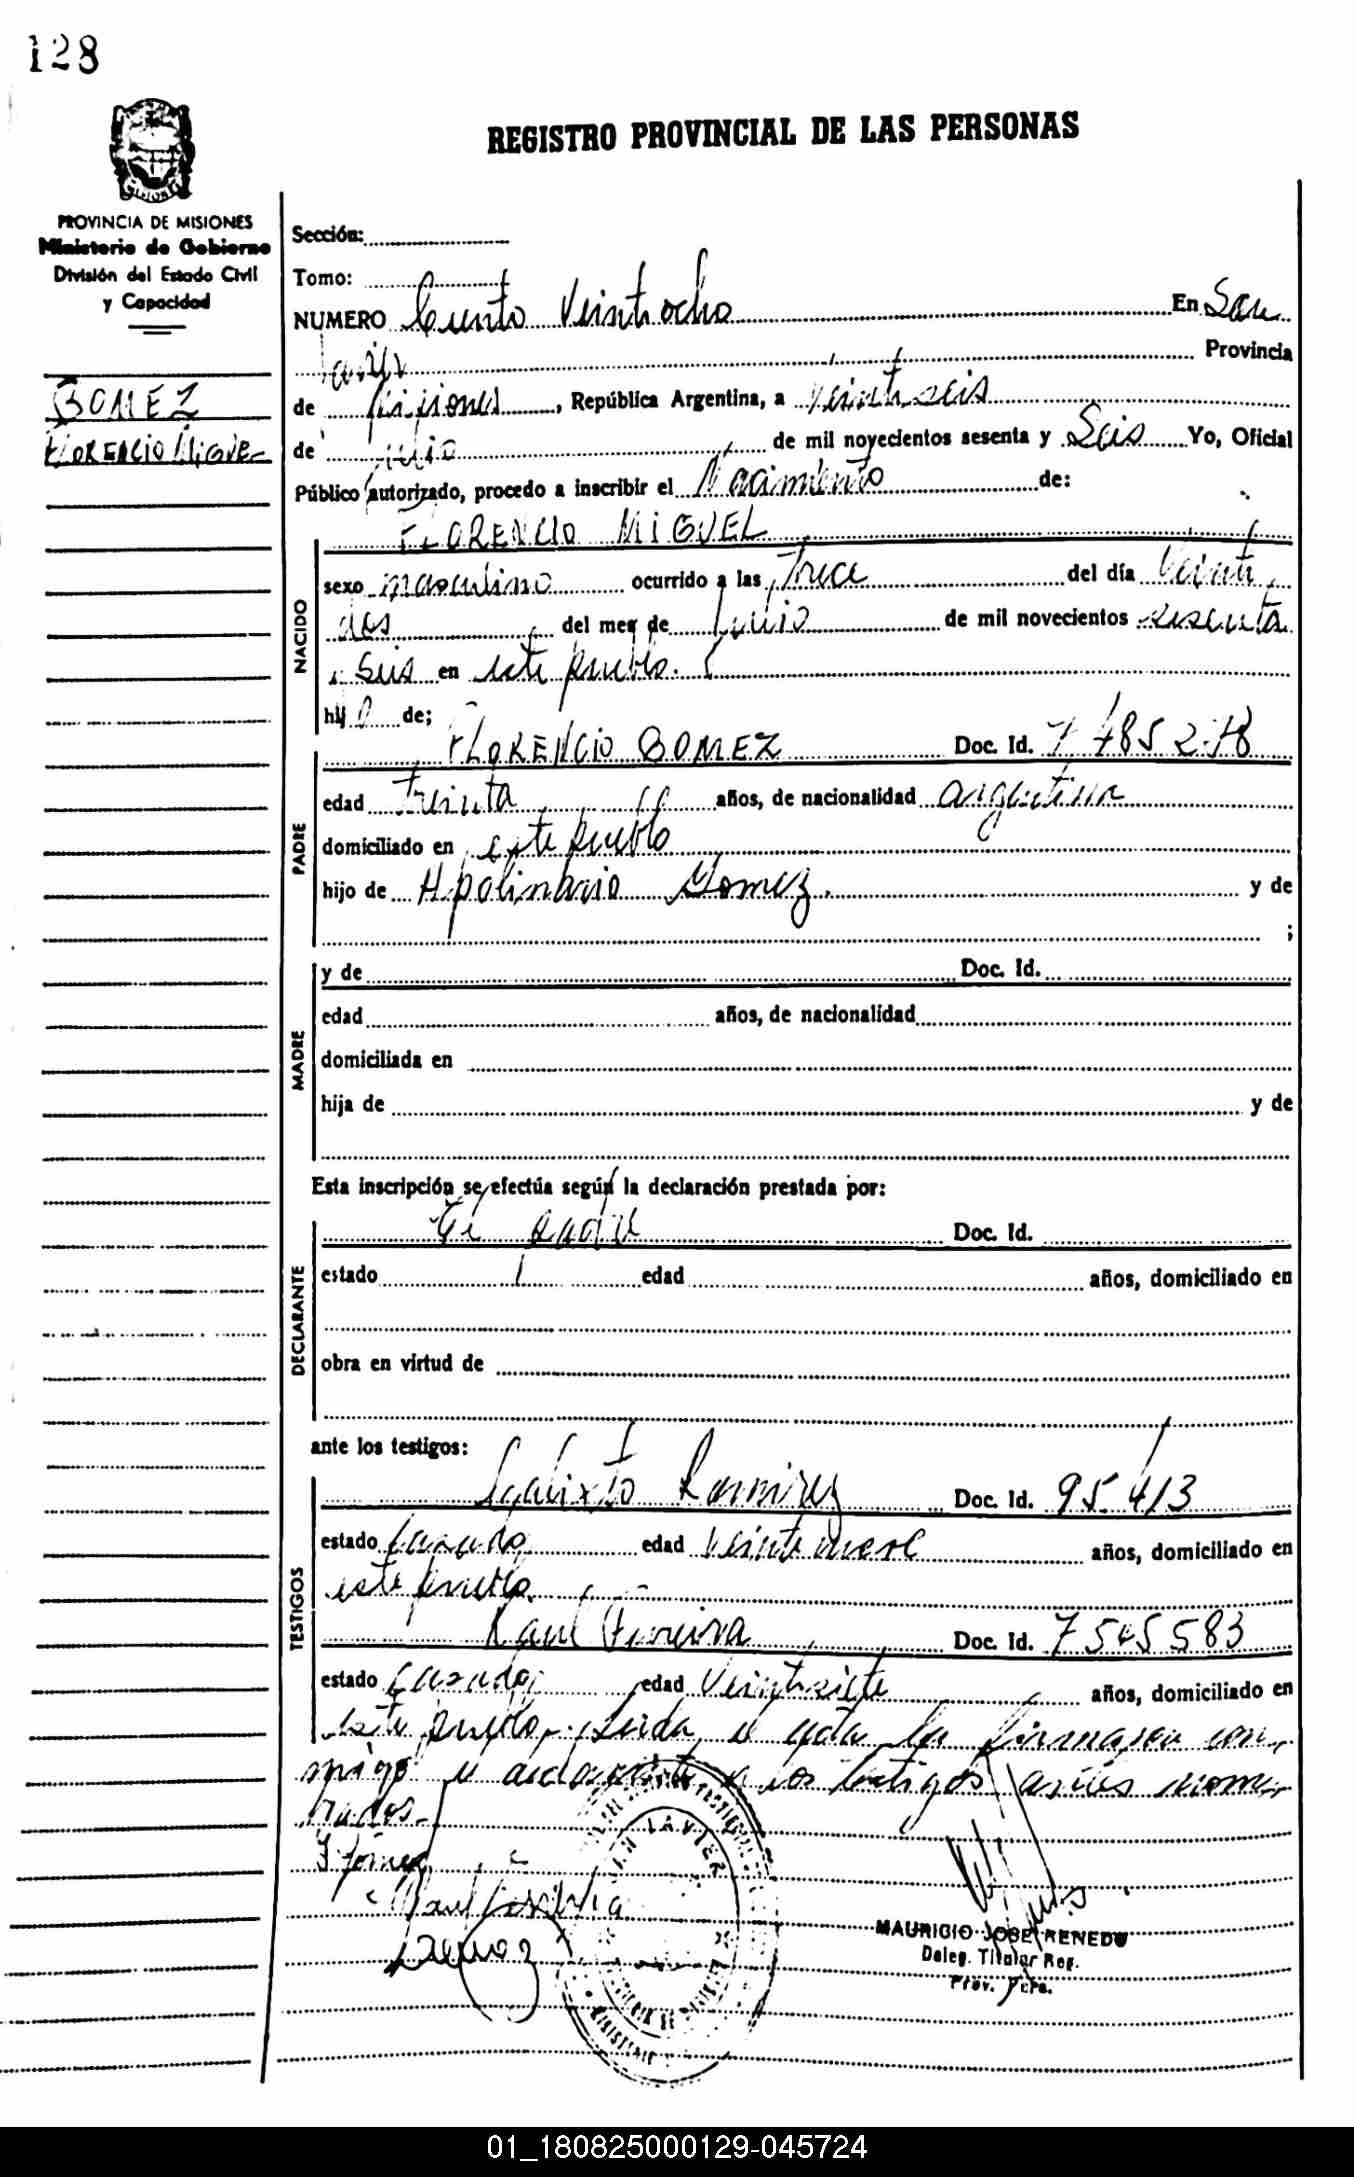 128
REGISTRO PROVINCIAL DE LAS PERSONAS
PROVINCIA DE MISIONES
Ministerio de Gobierno
División del Estado Civil
y Capacidad
GOMEZ
FLORENCIO MIGUEL
Sección:
Tomo:
NUMERO Ciento Veintiocho En San
Javier Provincia
de Misiones, República Argentina, a veintiseis
de Julio de mil novecientos sesenta y Seis Yo, Oficial
Público autorizado, procedo a inscribir el Nacimiento de:
FLORENCIO MIGUEL
NACIDO
sexo masculino ocurrido a las trece del día Veinti
dos del mes de Junio de mil novecientos sesenta
Seis en este pueblo.
hijo de;
FLORENCIO GOMEZ Doc. Id.
PADRE
edad Treinta años, de nacionalidad argentina
domiciliado en este pueblo
hijo de Apolinario Gomez. y de
;
MADRE
y de Doc. Id.
edad años, de nacionalidad
domiciliada en
hija de y de
Esta inscripción se efectúa según la declaración prestada por:
DECLARANTE
El padre Doc. Id.
estado edad años, domiciliado en
obra en virtud de
ante los testigos:
TESTIGOS
Calixto Ramirez Doc. Id. 95413
estado Casado edad Veintinueve años, domiciliado en
este pueblo.
Raul Ferreira Doc. Id. 7545583
estado Casado edad Veintisiete años, domiciliado en
este pueblo. Leida el acta la firmaron con
migo el declarante y los testigos antes nom
brados.
F Gómez
Raul Ferreira
SAN JAVIER
MAURICIO JOSE RENEDO
Deleg. Titular Reg.
Prov. Pers.
01_180825000129-045724